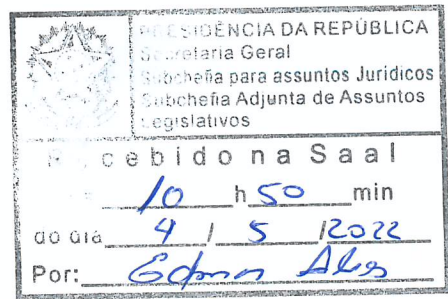 PRESIDÊNCIA DA REPÚBLICA
Secretaria Geral
Subchefia para assuntos Jurídicos
Subchefia Adjunta de Assuntos
Legislativos
Recebido na Saal
às 10 h 50 min
do dia 4 / 5 /2022
Por: